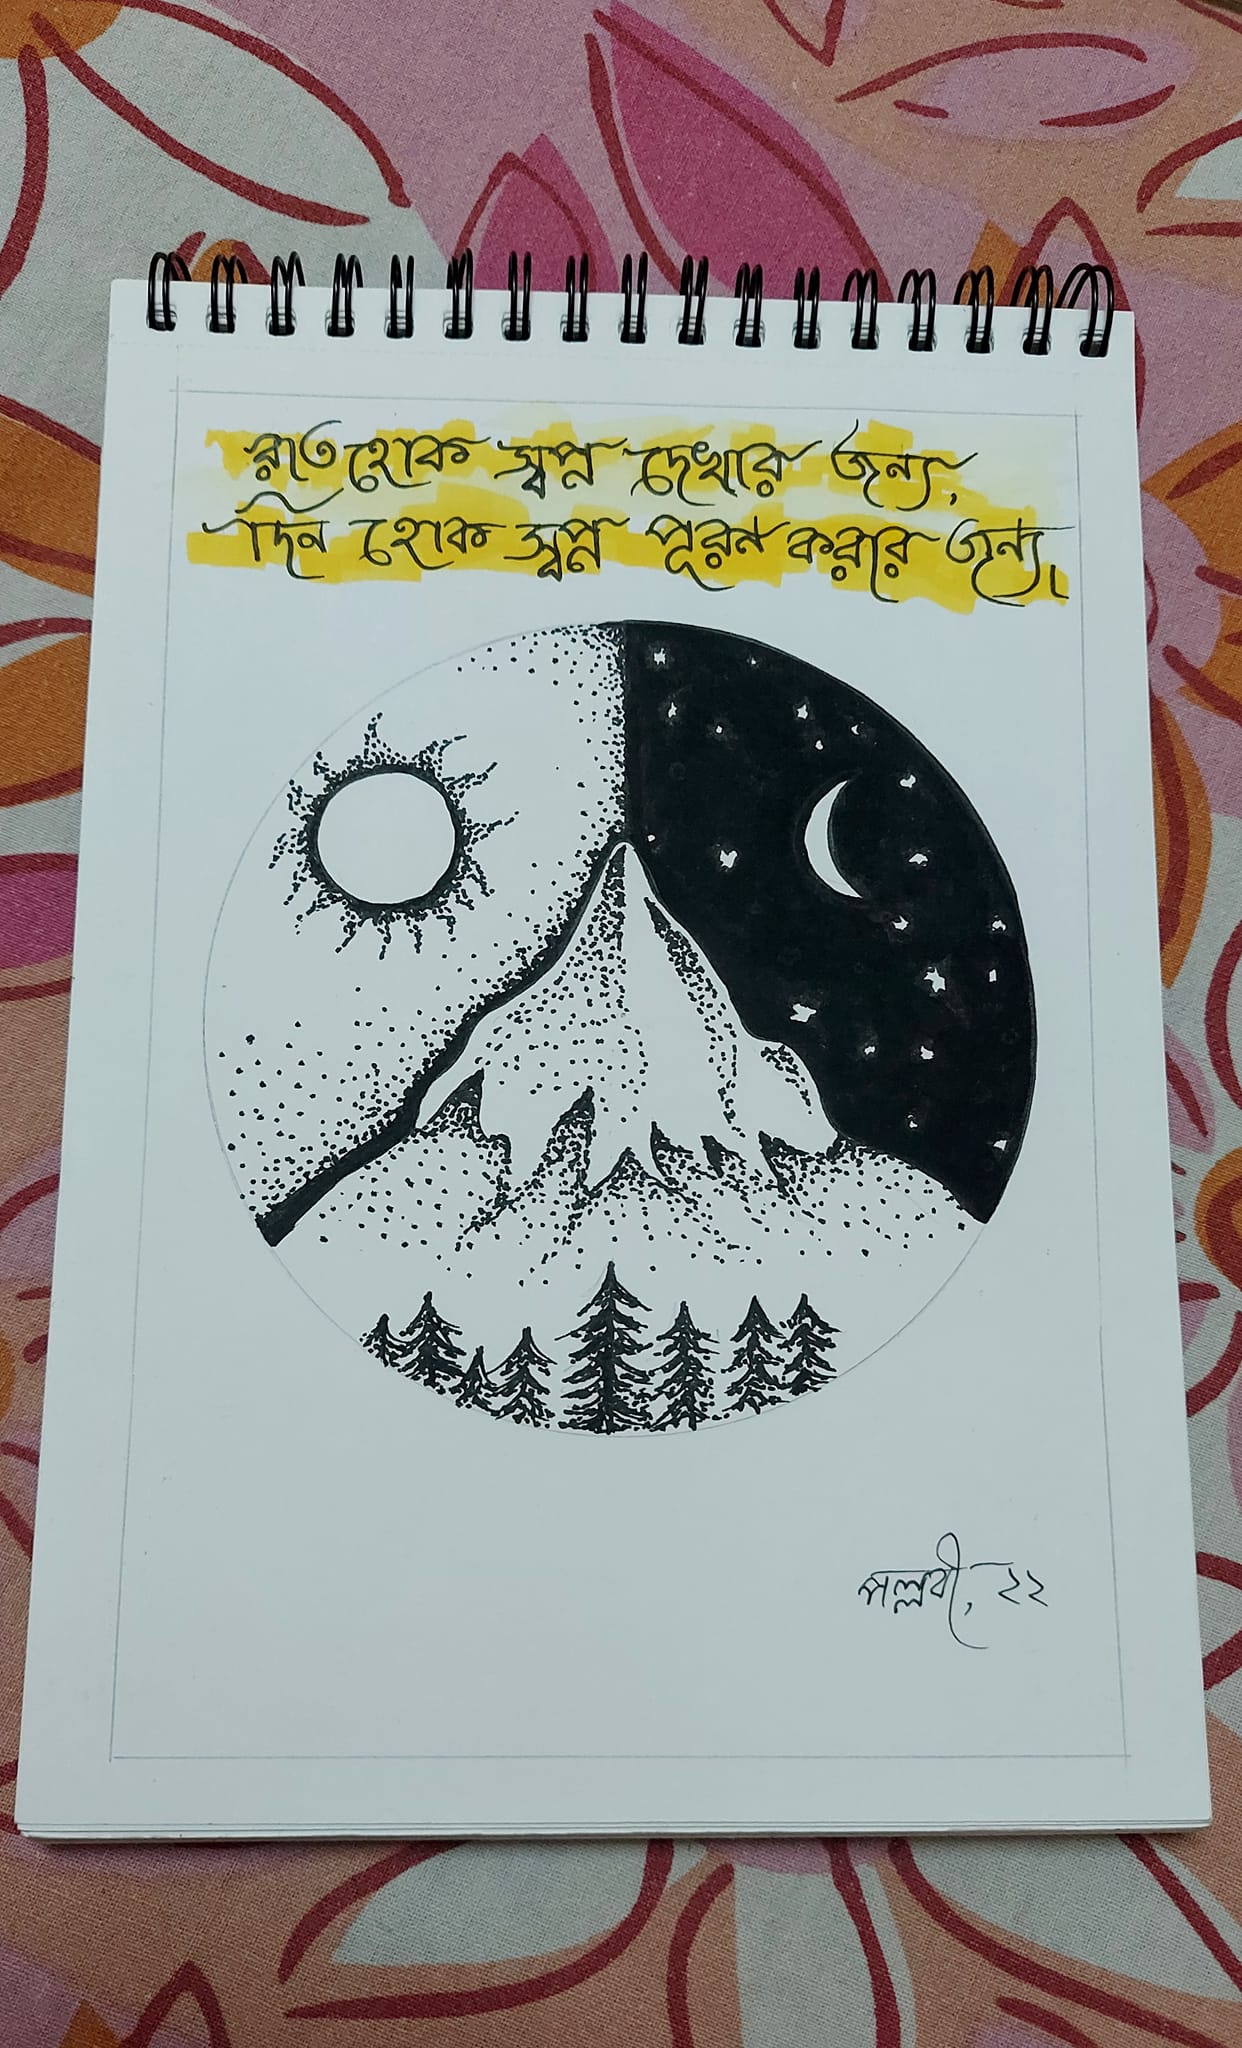 রাত হোক স্বপ্ন দেখার জন্য,
দিন হোক স্বপ্ন পূরন করার জন্য।
পল্লবী, ২২